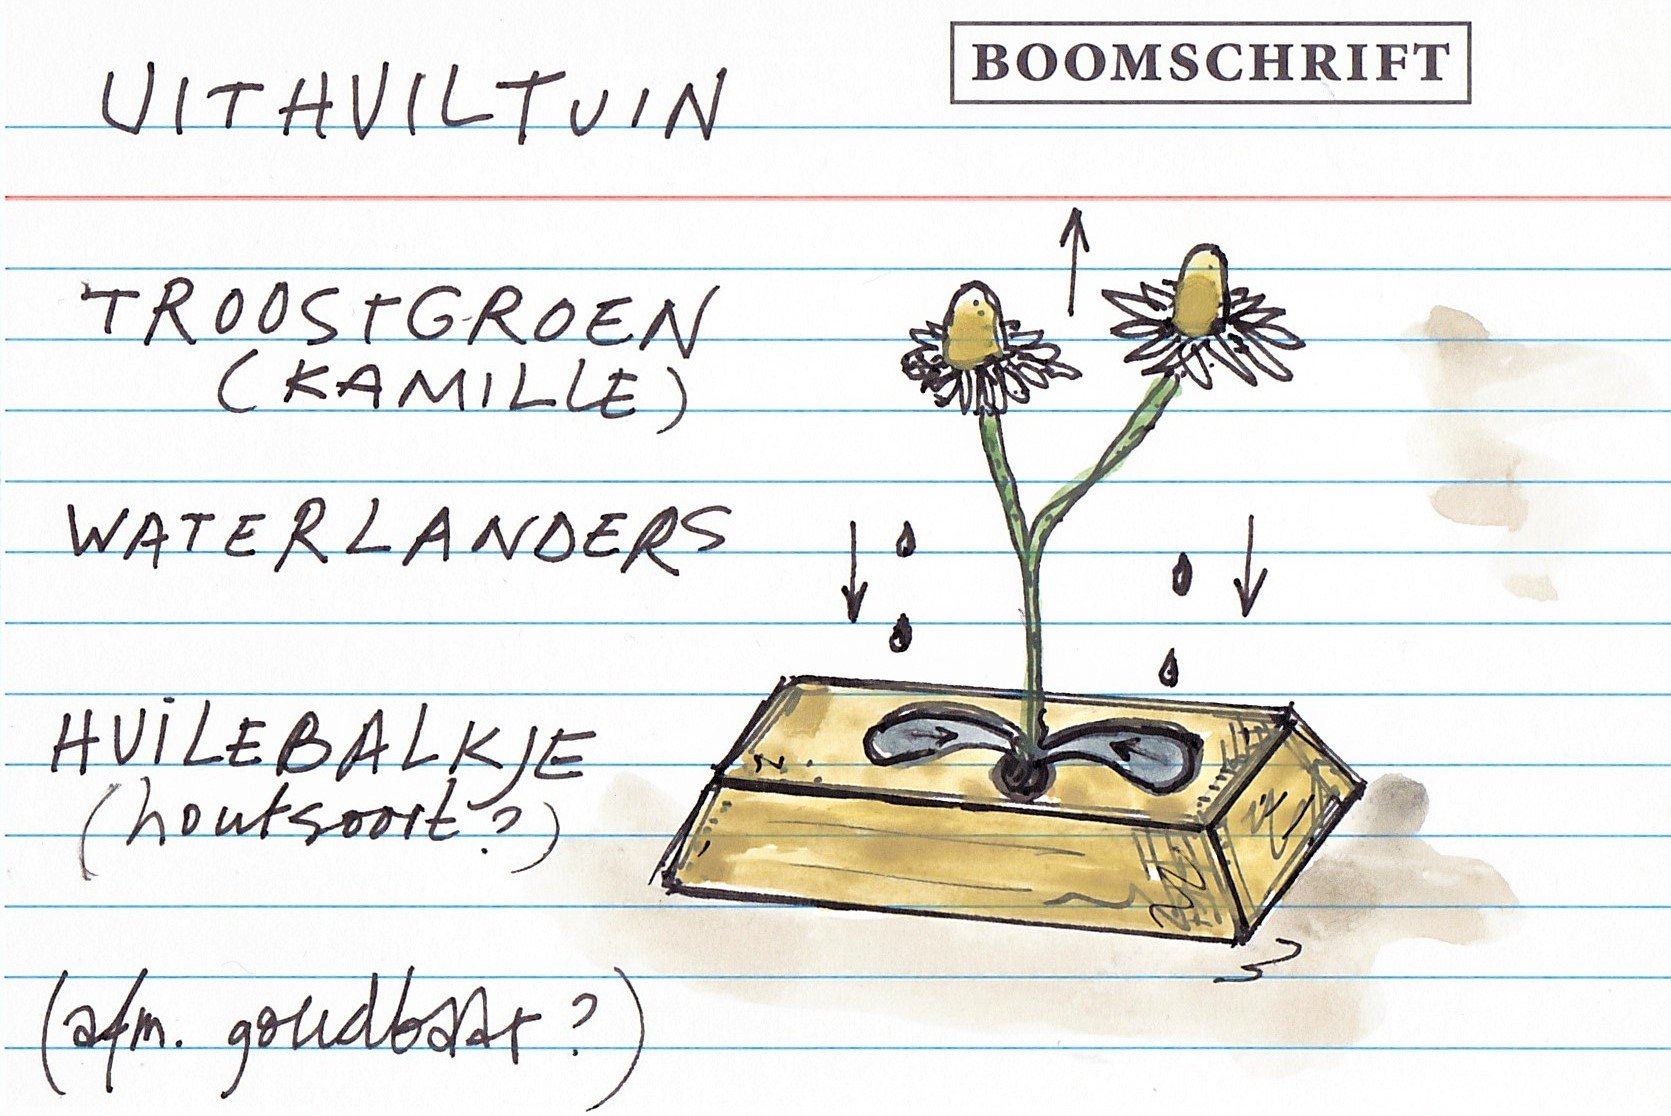 BOOMSCHRIFT
UITHUILTUIN
TROOSTGROEN
(KAMILLE)
WATERLANDERS
HUILEBALKJE
(houtsoort?)
(afm. goudbaar?)